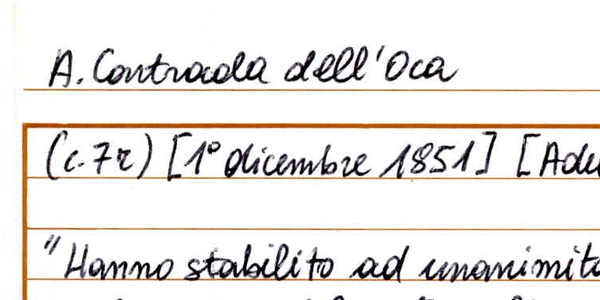 A. Contrada dell'Oca
(c. 7r) [1° dicembre 1851] [Adu
"Hanno stabilito ad unanimità